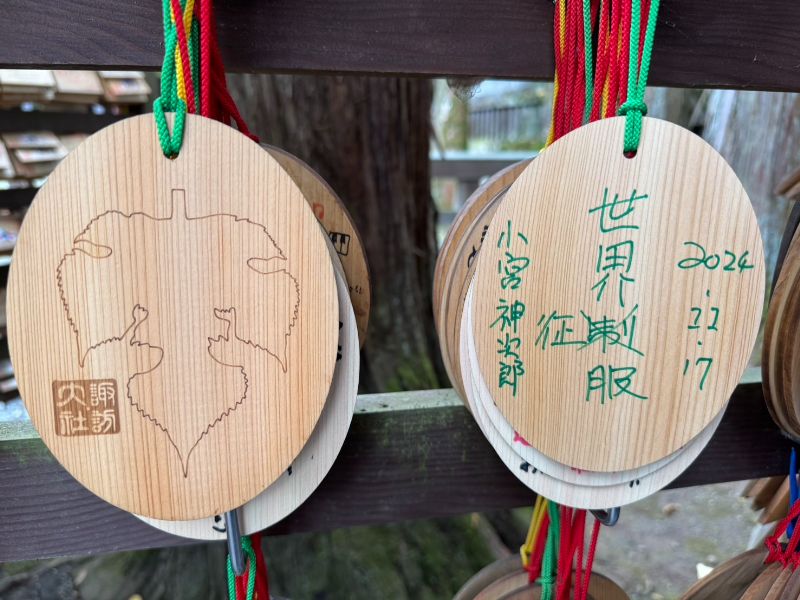 諏訪
大社
2024.22.17
世界制服
征
小宮神次郎